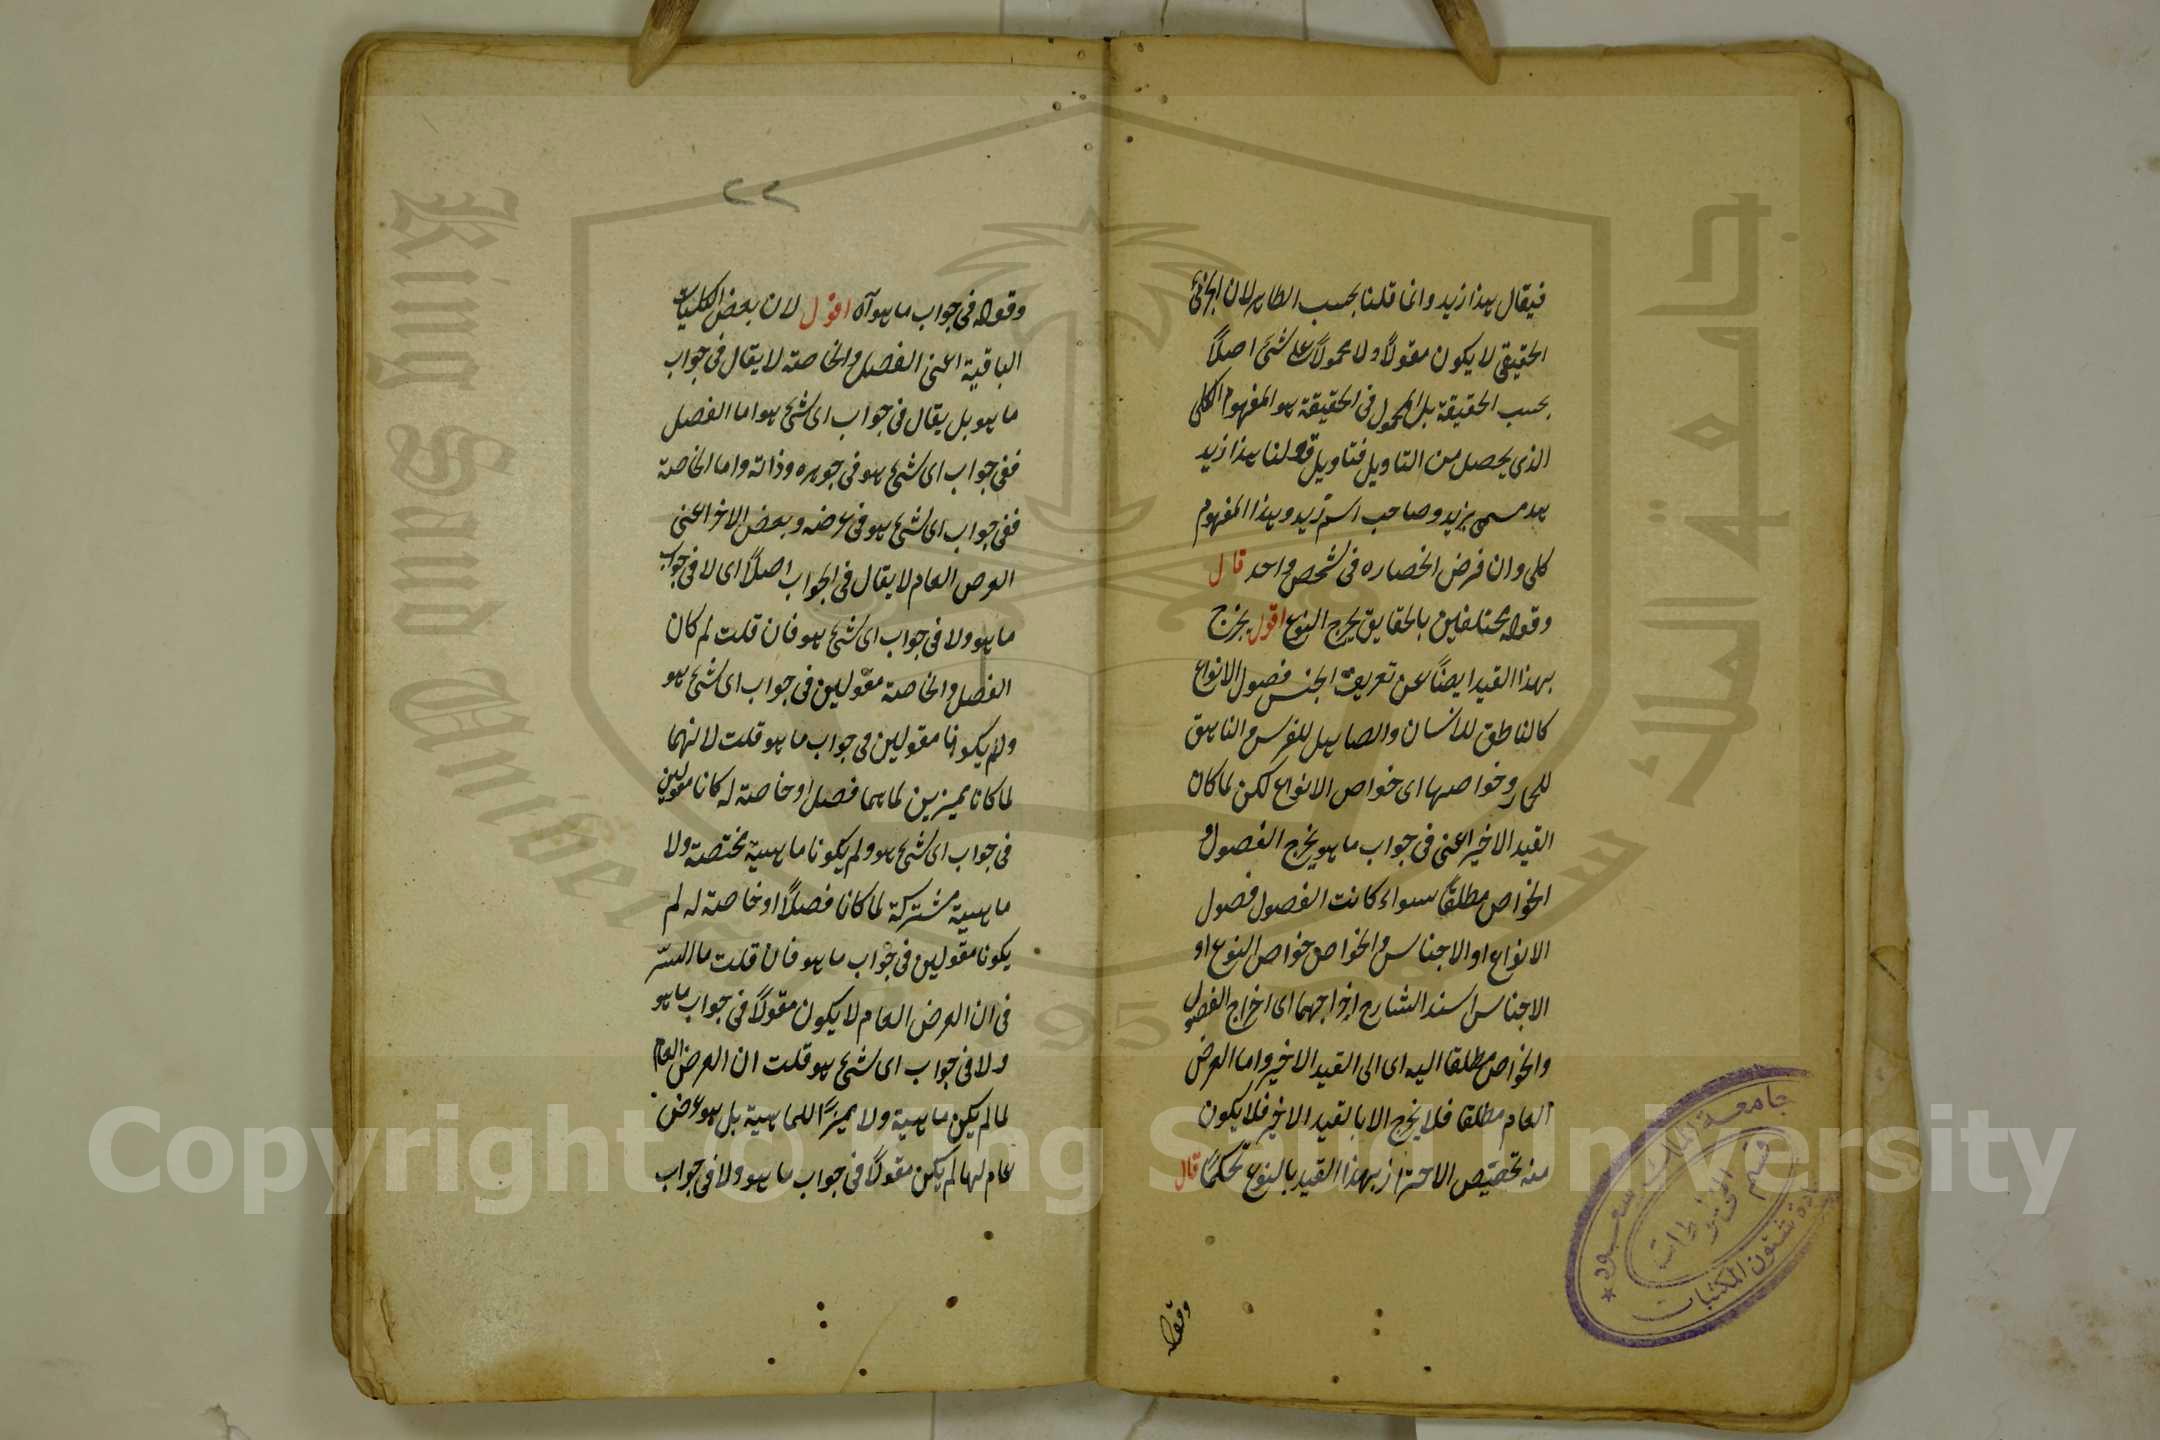 فيقال هذا زيد وانما قلنا بحسب الظاهر لان الجزئى
الحقيقى لا يكون مقولاً ولا محمولاً على شئ اصلاً
بحسب الحقيقة بل المحمول فى الحقيقة هو المفهوم الكلى
الذى يحصل من التاويل فتاويل قولنا هذا زيد
هذا مسمى بزيد وصاحب اسم زيد وهذا المفهوم
كلى وان فرض انحصاره فى شخص واحد قال
وقوله مختلفين بالحقايق يخرج النوع اقول يخرج
بهذا القيد ايضاً عن تعريف الجنس فصول الانواع
كالناطق للانسان والصاهل للفرس والناهق
للحمار وخواصها اى خواص الانواع لكن لما كان
القيد الاخير اعنى فى جواب ما هو يخرج الفصول و
الخواص مطلقاً سواء كانت الفصول فصول
الانواع او الاجناس والخواص خواص النوع او
الاجناس اسند الشارح اخراجهما اى اخراج الفصول
والخواص مطلقا اليه اى الى القيد الاخير واما العرض
العام مطلقا فلا يخرج الا بالقيد الاخير فلا يكون
منه تخصيص الاحتراز بهذا القيد بالنوع تحكماً قال
وقوله
٢٢
وقوله فى جواب ما هو آه اقول لان بعض الكليات
الباقية اعنى الفصل والخاصة لا يقال فى جواب
ما هو بل يقال فى جواب اى شئ هو اما الفصل
ففى جواب اى شئ هو فى جوهره وذاته واما الخاصة
ففى جواب اى شئ هو فى عرضه وبعض الاخر اعنى
العرض العام لا يقال فى الجواب اصلاً اى لا فى جواب
ما هو ولا فى جواب اى شئ هو فان قلت لم كان
الفصل والخاصة مقولين فى جواب اى شئ هو
ولم يكونا مقولين فى جواب ما هو قلت لانهما
لما كانا مميزين لما هما فصل او خاصة له كانا مقولين
فى جواب اى شئ هو ولم يكونا ماهية مختصة ولا
ماهية مشتركة لما كانا فصلاً او خاصة له لم
يكونا مقولين فى جواب ما هو فان قلت ما السر
فى ان العرض العام لا يكون مقولاً فى جواب ما هو
ولا فى جواب اى شئ هو قلت ان العرض العام
لما لم يكن ماهية ولا مميزاً للماهية بل هو عرض
عام لها لم يكن مقولاً فى جواب ما هو ولا فى جواب
جامعة الملك سعود
قسم المخطوطات
عمادة شئون المكتبات
King Saud University
جامعة الملك سعود
Copyright © King Saud University